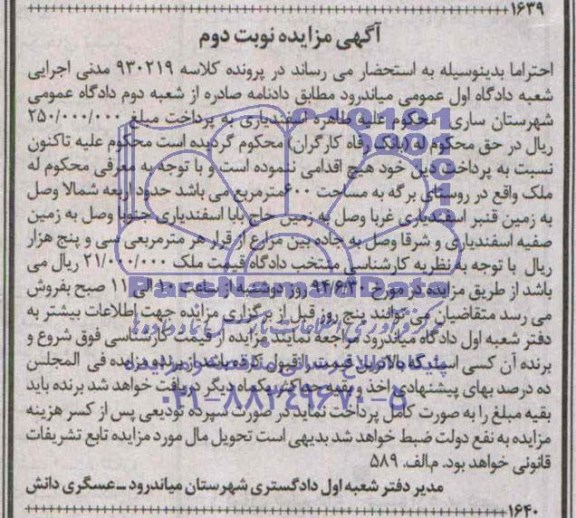 ۱۶۳۹
آگهی مزایده نوبت دوم
احتراما بدینوسیله به استحضار می رساند در پرونده کلاسه ۹۳۰۲۱۹ مدنی اجرایی
شعبه دادگاه اول عمومی میاندرود مطابق دادنامه صادره از شعبه دوم دادگاه عمومی
شهرستان ساری محکوم علیه طاهره اسفندیاری به پرداخت مبلغ ۲۵۰/۰۰۰/۰۰۰
ریال در حق محکوم له (بانک رفاه کارگران) محکوم گردیده است محکوم علیه تاکنون
نسبت به پرداخت دین خود هیچ اقدامی ننموده است و با توجه به معرفی محکوم له
ملک واقع در روستای برگه به مساحت ۶۰۰مترمربع می باشد حدود اربعه شمالا وصل
به زمین قنبر اسفندیاری غربا وصل به زمین حاج بابا اسفندیاری جنوبا وصل به زمین
صفیه اسفندیاری و شرقا وصل به جاده بین مزارع از قرار هر مترمربعی سی و پنج هزار
ریال با توجه به نظریه کارشناسی منتخب دادگاه قیمت ملک ۲۱/۰۰۰/۰۰۰ ریال می
باشد از طریق مزایده در مورخ ۹۴/۶/۳۰ روز دوشنبه از ساعت ۱۰ الی ۱۱ صبح بفروش
می رسد متقاضیان می توانند پنج روز قبل از برگزاری مزایده جهت اطلاعات بیشتر به
دفتر شعبه اول دادگاه میاندرود مراجعه نمایند مزایده از قیمت کارشناسی فوق شروع و
برنده آن کسی است که بالاترین قیمت را قبول کرده باشد از برنده مزایده فی المجلس
ده درصد بهای پیشنهادی اخذ و بقیه حداکثر یکماه دیگر دریافت خواهد شد برنده باید
بقیه مبلغ را به صورت کامل پرداخت نماید در صورت سپرده تودیعی پس از کسر هزینه
مزایده به نفع دولت ضبط خواهد شد بدیهی است تحویل مال مورد مزایده تابع تشریفات
قانونی خواهد بود. م.الف. ۵۸۹
مدیر دفتر شعبه اول دادگستری شهرستان میاندرود ـ عسگری دانش
۱۶۴۰
ParsNamadData
۰۲۱-۸۸۳۴۹۶۷۰-۵